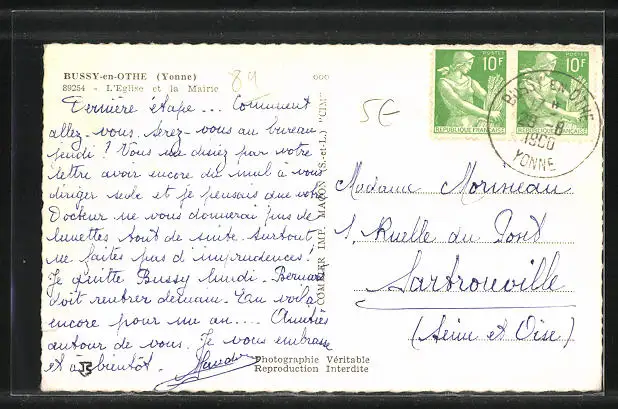 BUSSY-en-OTHE (Yonne)
89254 - L'Eglise et la Mairie
89
Dernière étape ... Comment
allez-vous. Serez-vous au bureau
jeudi ? Vous me disiez par votre
lettre avoir encore du mal à vous
diriger seule et je pensais que votre
Docteur ne vous donnerai pas de
lunettes tout de suite. Surtout
ne faites pas d'imprudences.
Je quitte Bussy lundi. Bernard
doit rentrer demain. En voilà
encore pour un an .... Amitiés
autour de vous. Je vous embrasse
et à bientôt.
Photographie Véritable
Reproduction Interdite
COMBIER IMP. MACON (S.-et-L.) "CIM"
5€
POSTES
10F
REPUBLIQUE FRANÇAISE
POSTES
10F
REPUBLIQUE FRANÇAISE
BUSSY-EN-OTHE
29-8
1960
YONNE
Madame Morineau
1, Ruelle du Pont
Sartrouville
(Seine et Oise)